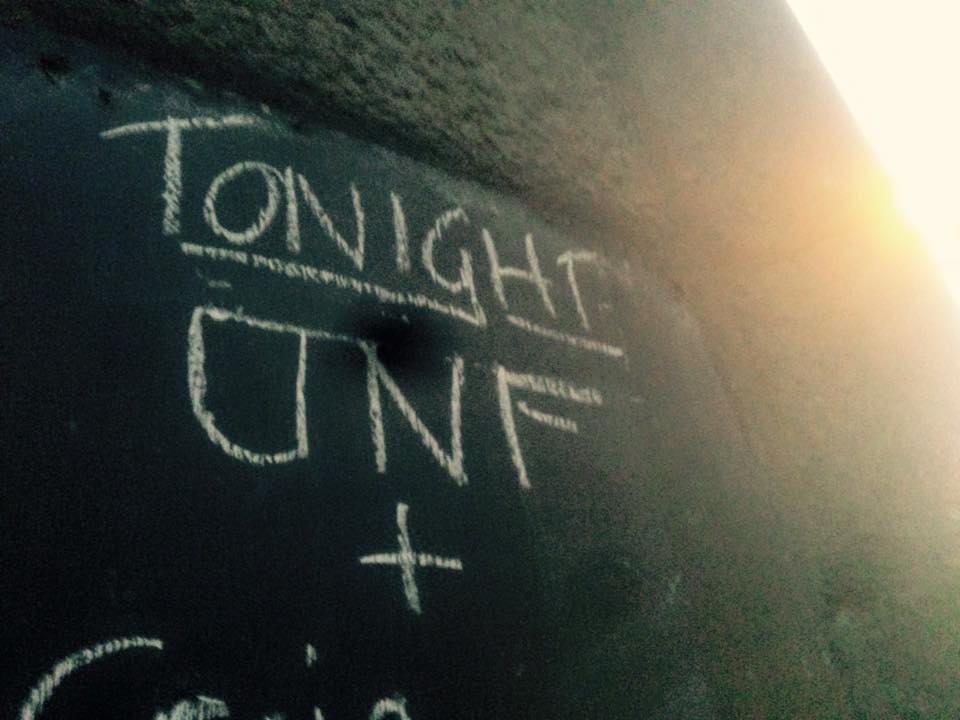 TONIGHT
UNF
+